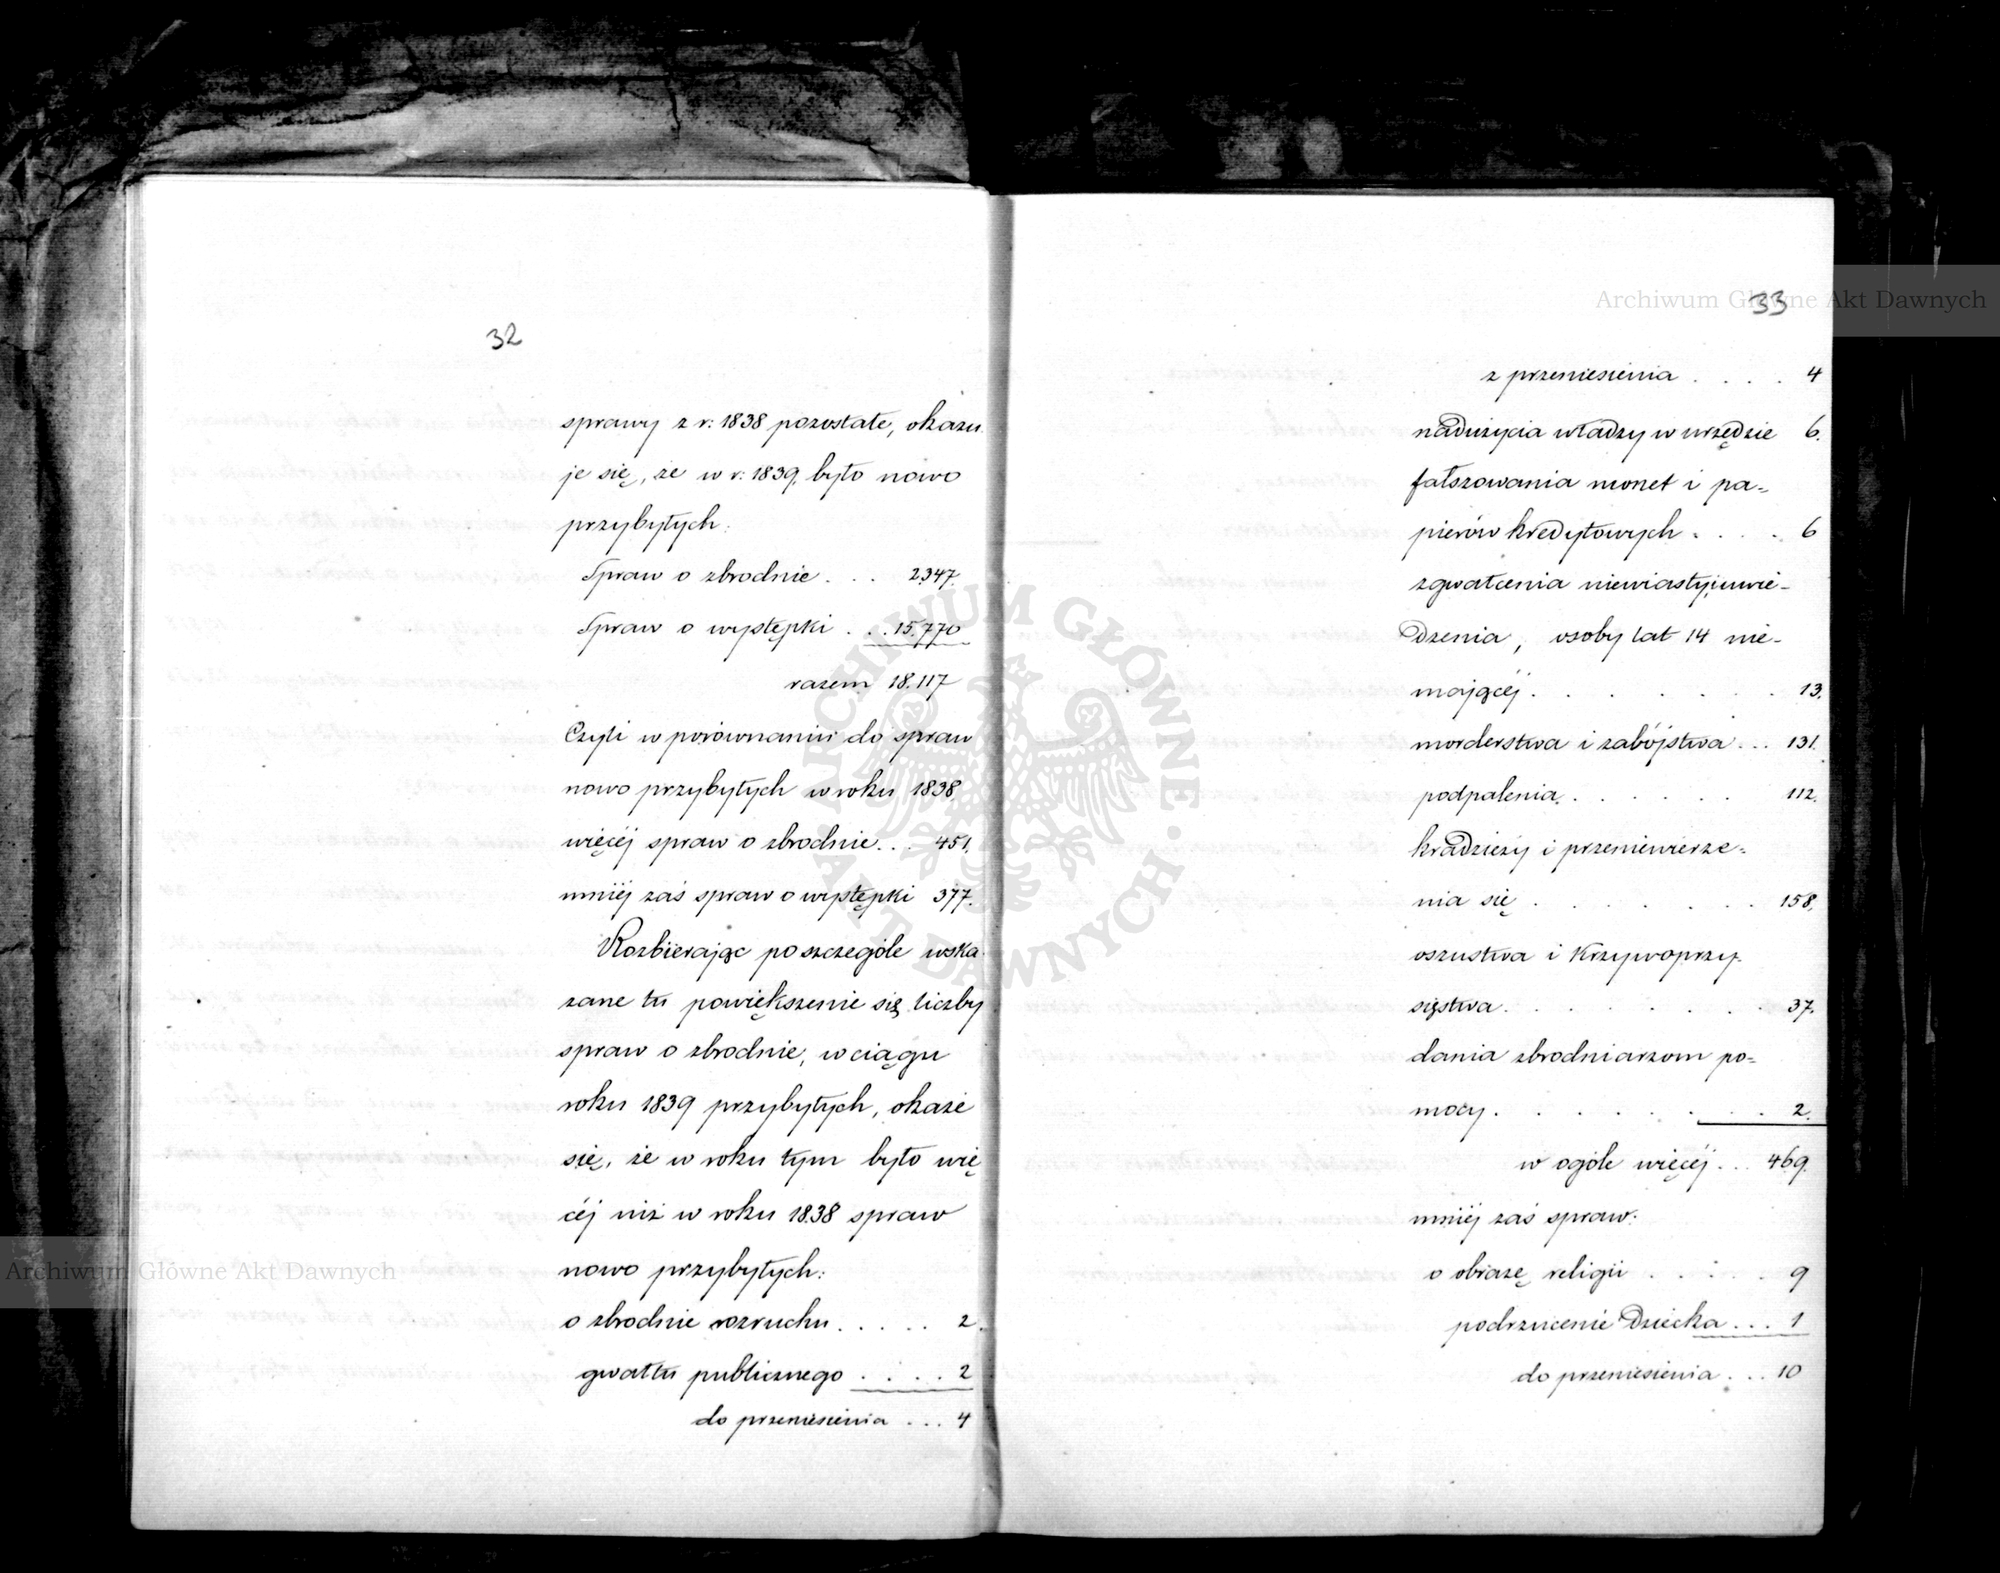 32
sprawy z r: 1838 pozostałe, okazu
je się, że w r: 1839, było nowo
przybyłych:
Spraw o zbrodnie . . . 2347.
Spraw o występki . . . 15.770
razem 18.117
Czyli w porównaniu do spraw
nowo przybyłych w roku 1838.
więcéj spraw o zbrodnie . . . 451.
mniéj zaś spraw o występki 377.
Rozbierając poszczególe wska
zane tu powiększenie się liczby
spraw o zbrodnie, w ciągu
roku 1839 przybyłych, okaże
się, że w roku tym było wię
céj niż w roku 1838 spraw
nowo przybyłych:
o zbrodnie rozruchu . . . . . 2.
gwałtu publicznego . . . . 2
do przeniesienia . . . 4
33
z przeniesienia . . . . 4
nadużycia władzy w urzędzie 6.
fałszowania monet i pa=
pierów kredytowych . . . . 6
zgwałcenia niewiasty, uwie-
dzenia, osoby lat 14 nie-
mającéj . . . . . . . 13.
morderstwa i zabójstwa . . . 131.
podpalenia . . . . . . 112.
kradzieży i przeniewierze=
nia się . . . . . . . 158.
oszustwa i krzywoprzy-
sięstwa . . . . . . . . 37.
dania zbrodniarzom po=
mocy . . . . . . . . 2.
w ogóle więcéj . . . 469.
mniéj zaś spraw:
o obrazę religii . . . . . 9
podrzucenie dziecka . . . 1
do przeniesienia . . . 10
Archiwum Główne Akt Dawnych
Archiwum Główne Akt Dawnych
ARCHIWUM GŁÓWNE · AKT DAWNYCH ·